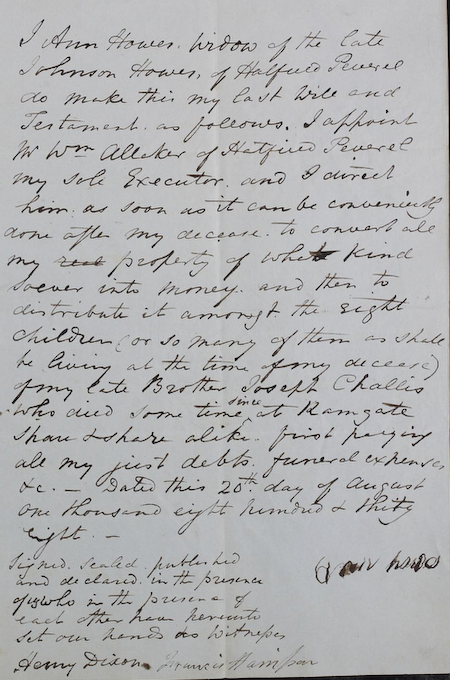 I Ann Howes. Widow of the late
Johnson Howes, of Hatfield Peverel
do make this my last Will and
Testament. as follows. I appoint
Mr Wm Alleker of Hatfield Peverel
my sole Executor. and I direct
him. as soon as it can be conveniently
done after my decease. to convert all
my real property of what kind
soever into money. and then to
distribute it amongst the eight
children (or so many of them as shall
be living at the time of my decease)
of my late Brother Joseph Challis
who died some time since at Ramgate
Share & share alike. first paying
all my just debts, funeral expenses
&c. — Dated this 20th day of August
one thousand eight hundred & thity
eight. —
Signed. sealed. published
and declared. in the presence
of us who in the presence of
each other have hereunto
set our hands as Witnesses
Henry Dixon Francis Harrison